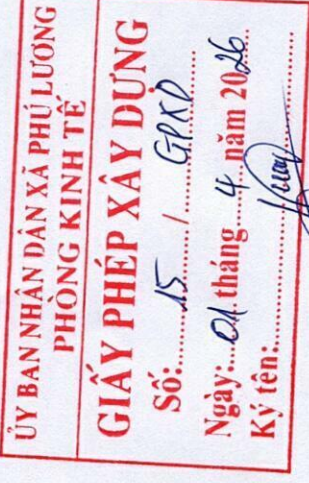 ỦY BAN NHÂN DÂN XÃ PHÚ LƯƠNG
PHÒNG KINH TẾ
GIẤY PHÉP XÂY DỰNG
Số: 15 / GPXD
Ngày: 01 tháng 4 năm 2026
Ký tên: